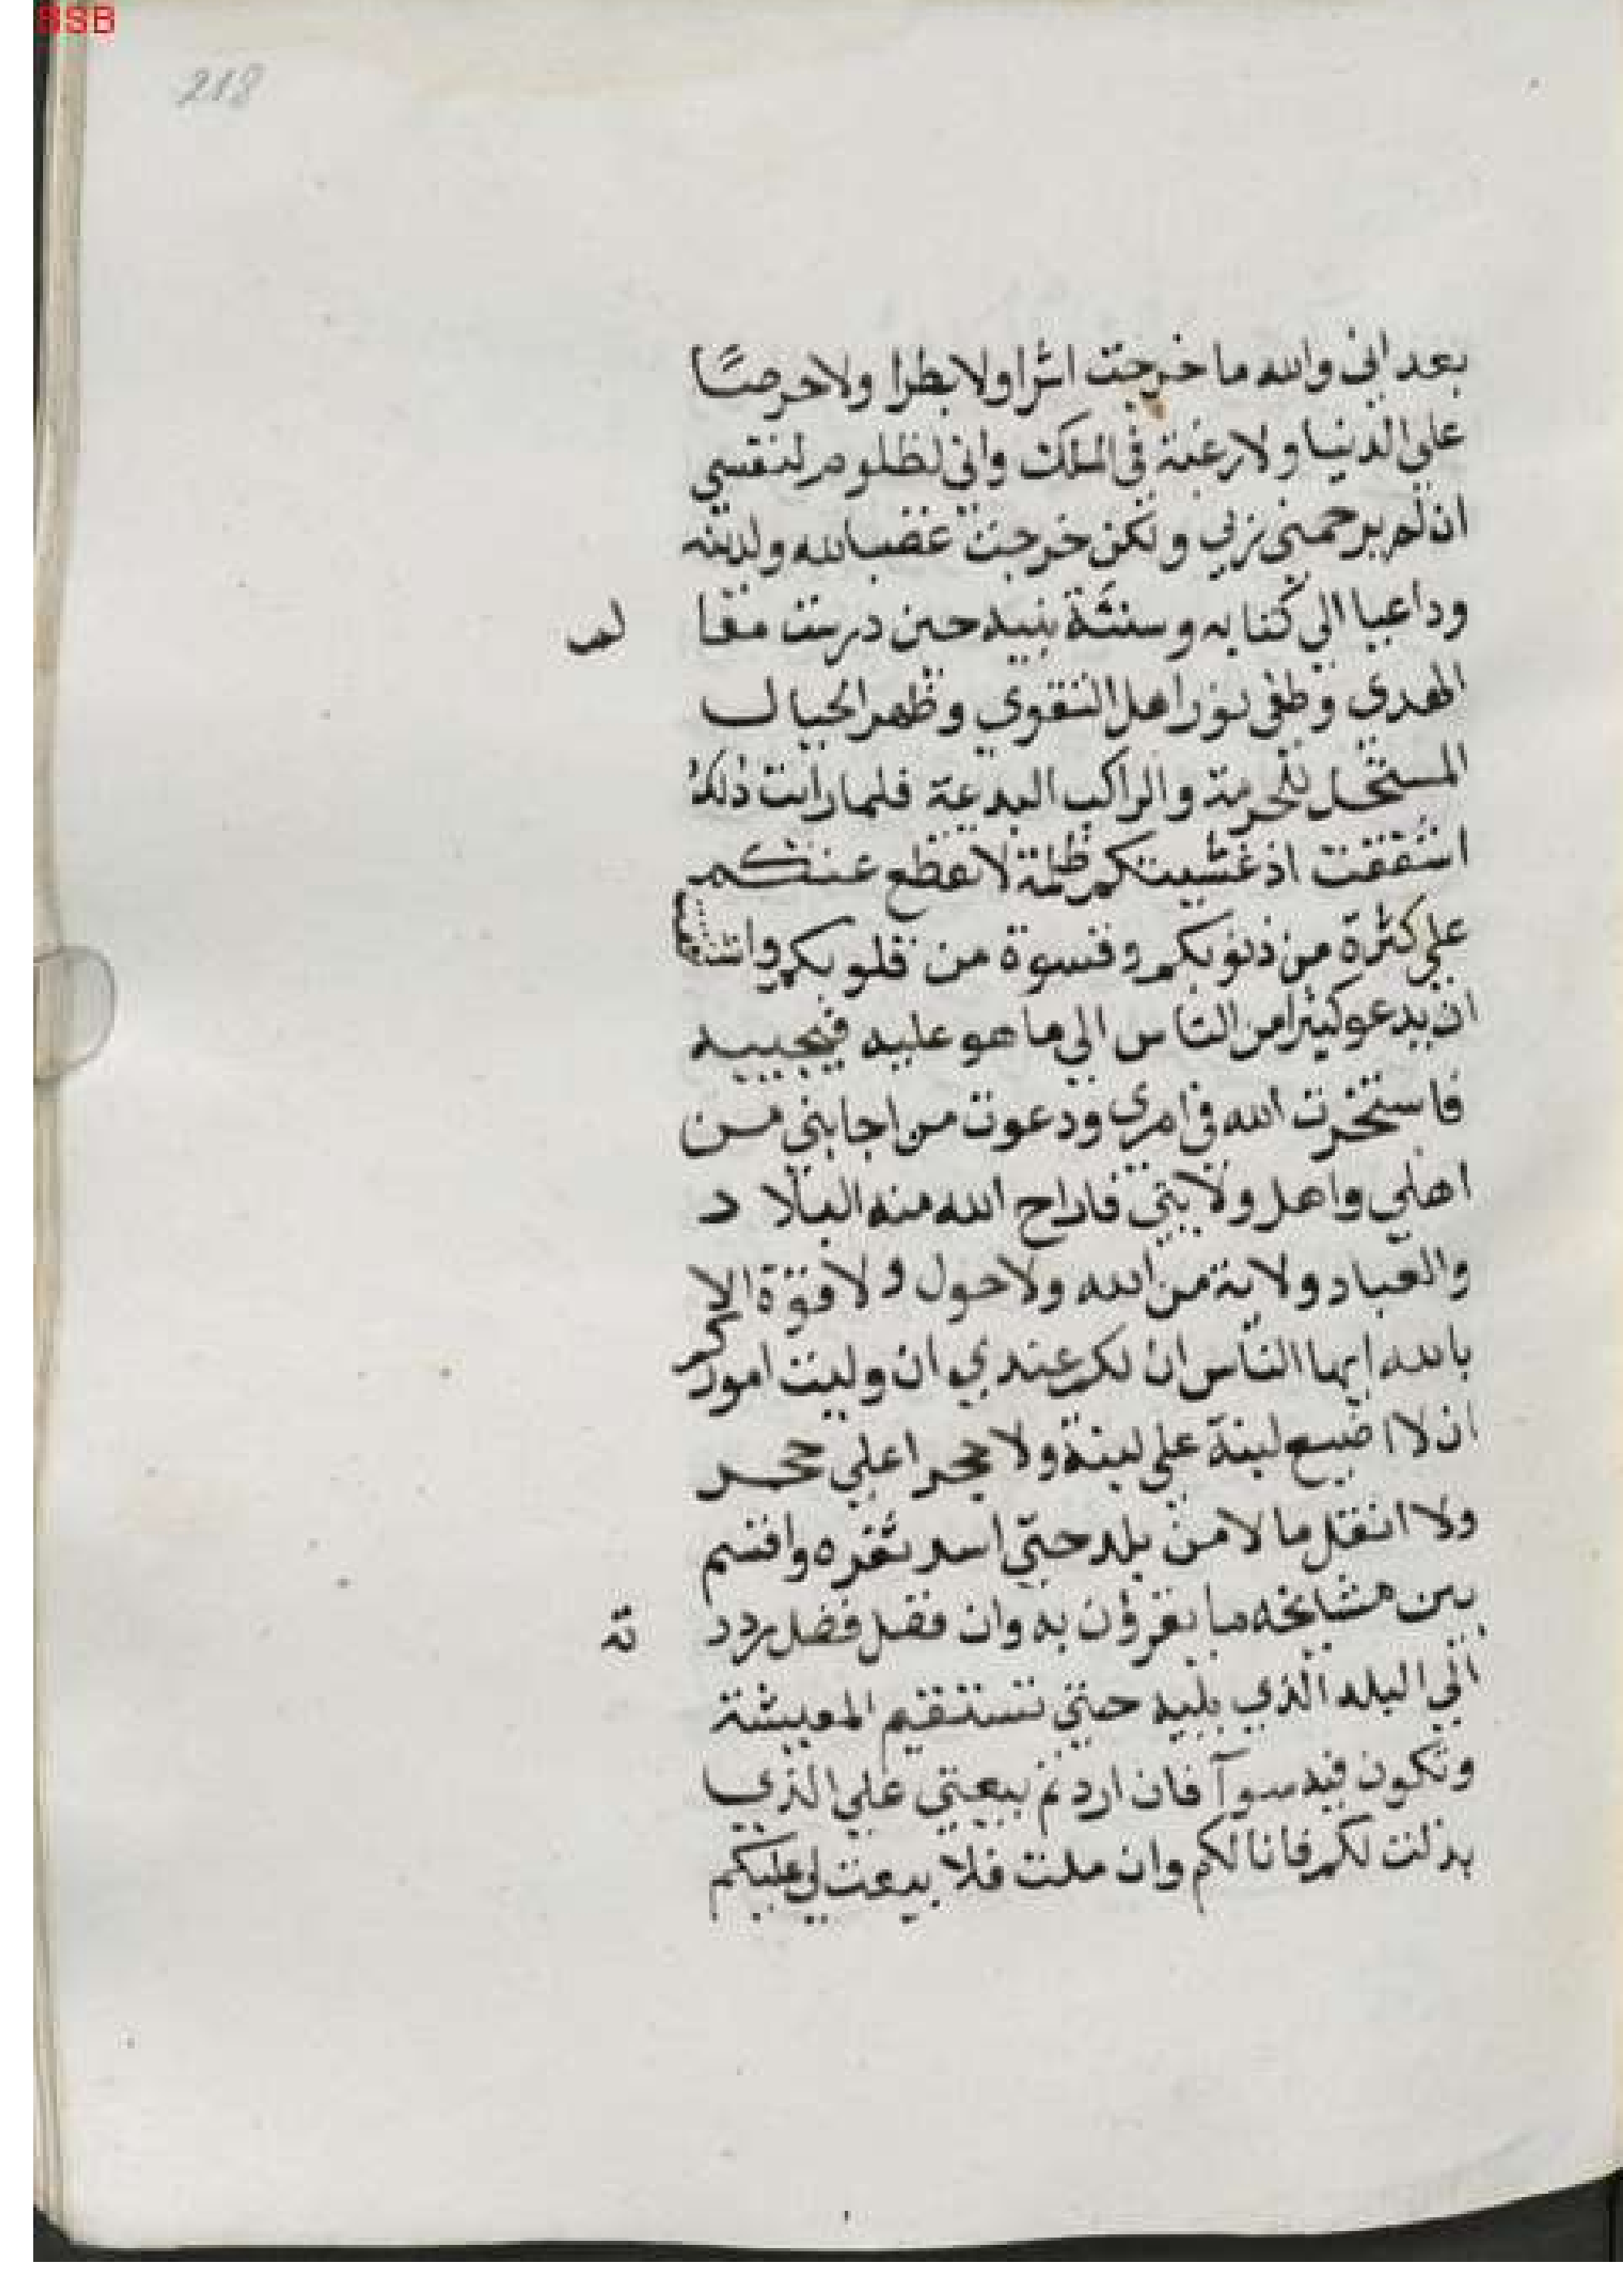 BSB
218
بعد اني والله ما خرجت اشرا ولا بطرا ولا حرصًا
علي الدنيا ولا رغبة في الملك واني لظلوم لنفسي
ان لم يرحمني ربي ولكن خرجت غضبا لله ولدينه
وداعيا الي كتابه وسنة نبيه حين درست معا لم
الهدي وطفي نور اهل التقوي وظهر الجبا ب
المستحل للحرمة والراكب البدعة فلما رايت ذلك
اشفقت اذ غشيتكم ظلمة لا تقطع عنكم
علي كثرة من ذنوبكم وقسوة من قلوبكم واشفقت
ان يدعو كثيرا من الناس الي ما هو عليه فيجيبه
فاستخرت الله في امري ودعوت من اجابني من
اهلي واهل ولايتي فاراح الله منه البلا د
والعباد ولاية من الله ولا حول ولا قوة الا
بالله ايها الناس ان لكم عندي ان وليت اموركم
ان لا اضيع لبنة علي لبنة ولا حجرا علي حجر
ولا انقل مالا من بلد حتي اسد ثغره واقسم
بين مشايخه ما يقرؤن به وان فضل فضل ردد ته
الي البلد الذي يليه حتي تستقيم المعيشة
وتكون فيه سوآ فان اردتم بيعتي علي الذي
بذلت لكم فانا لكم وان ملت فلا بيعت لي عليكم